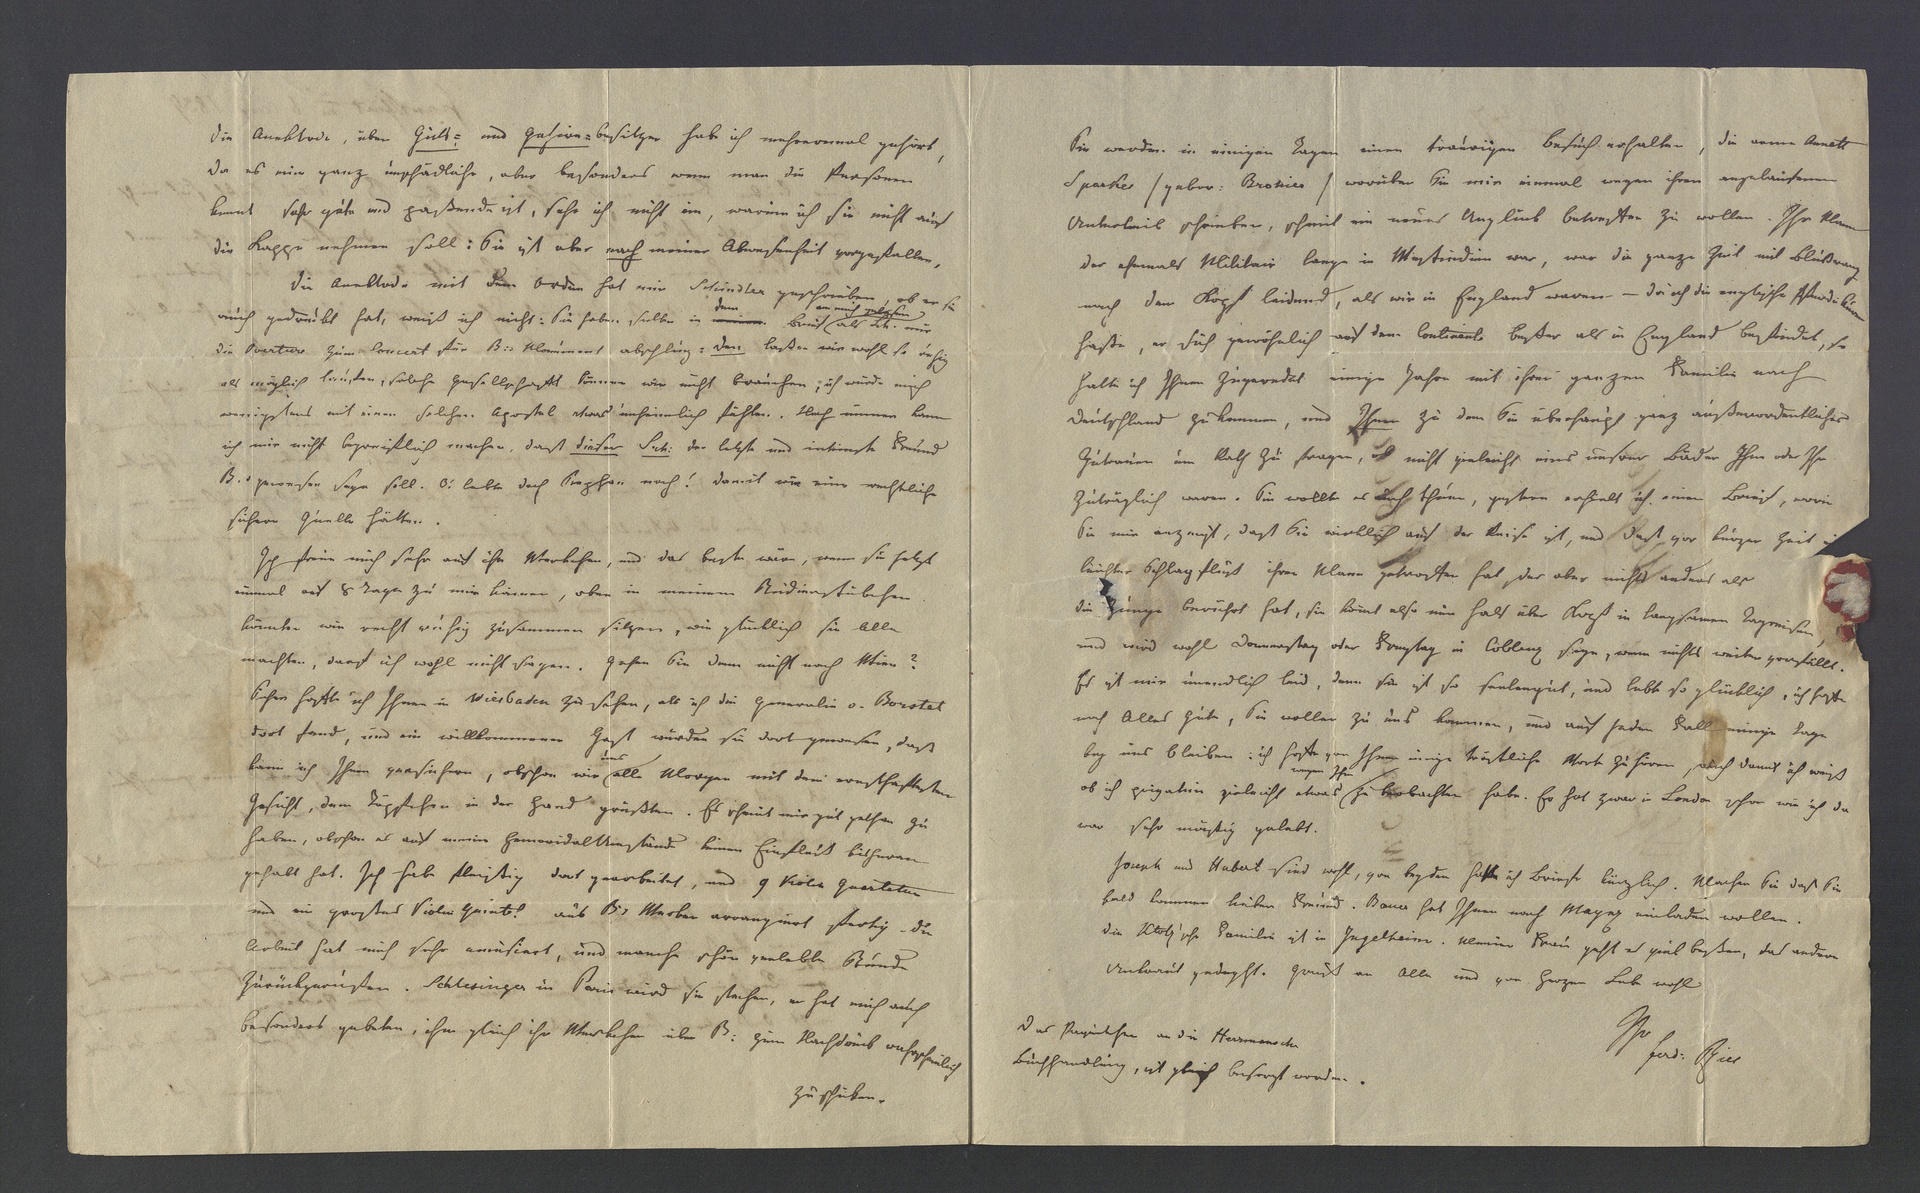 die Anecktode, über Guts= und Gehirn=besitzer hab ich mehreremal gehört,
da es eine ganz unschädliche, aber besonders wenn man die Personen
kennt sehr gute und paßende ist, sehe ich nicht ein, warum ich sie nicht auf
die Kappe nehmen soll: Sie ist aber nach meiner Abwesenheit vorgefallen,
die Anecktode mit dem Orden hat mir Schindler geschrieben, ob er sie
auch gedruckt hat, weiß ich nicht: Sie haben selbe in dem Brief an mich gelesen als Er mir
die Overtur zum Concert für B:s Monument abschlug: den laßen wir wohl so ruhig
als möglich laufen, solche Gesellschaft können wir nicht brauchen, ich würde mich
wenigstens mit einem solchen Apostel etwas unheimlich fühlen. Noch immer kann
ich mir nicht begreiflich machen, daß dieser Sch: der letzte und intimste Freund
B.s gewesen seyn soll. O! lebte doch Stephan noch! damit wir eine rechtliche
sichere Quelle hätten.
Ich freue mich sehr auf ihr Werkchen, und das beste wäre, wenn Sie selbst
einmal auf 8 Tage zu mir kämen, oben in meinem Studierstübchen
könnten wir recht ruhig zusammen sitzen, wie glücklich Sie Alle
machten, darf ich wohl nicht sagen. Gehen Sie denn nicht nach Wien?
Sicher hoffte ich Ihnen in Wiesbaden zu sehen, als ich die Generalin v. Borstel
dort fand, und ein willkommener Gast würden Sie dort gewesen, daß
kann ich Ihnen versichern, obschon wir uns alle Morgen mit dem ernsthaftesten
Gesicht, dem Töpfchen in der Hand grüßten. Es scheint mir gut gethan zu
haben, obschon es auf meine Hemoridal Umstände keinen Einfluß bisheran
gehabt hat. Ich habe fleißig dort gearbeitet, und 9 Violin Quartetten
und ein großes Violin Quint! aus B:s Werken arrangiert fertig - die
Arbeit hat mich sehr amüsiert, und manche schön verlebte Stunde
zurückgerufen. Schlesinger in Paris wird sie stechen, er hat mich auch
besonders gebeten, ihm gleich ihr Werkchen über B: zum Nachdruck wahrscheinlich
zu schicken.
Sie werden in einigen Tagen einen traurigen Besuch erhalten, die arme Annett
Sparkes /gebor: Brokies/ worüber Sie mir einmal wegen ihrem
schrieben, scheint ein neues Unglück betreffen zu wollen. Ihr Mann
der ehemals Militair lange in Westindien war, war die ganze Zeit mit Blutdrang
nach dem Kopf leidend, als wir in England waren - da ich die englische Medicin
haße, er sich gewöhnlich auf dem Continente beßer als in England befindet, so
hatte ich Ihnen zugeredet einige Jahre mit ihrer ganzen Familie nach
Deutschland zu kommen, und Ihnen zu dem Sie überhaupt ganz außerordentliches
Zutrauen um Rath zu fragen, ob nicht vieleicht eins unsrer Bäder Ihm oder Ihr
zuträglich wären. Sie wollte es auch thun, gestern erhielt ich einen Brief, worin
Sie mir anzeigt, daß Sie wirklich auf der Reise ist, und daß vor kurzer Zeit ein
leichter Schlagfluß ihren Mann getroffen hat, der aber nichts anders als
die Zunge berührt hat, sie kömt also nun hals über Kopf in langsamen Tagreisen,
und wird wohl Donnerstag oder Freytag in Coblenz seyn, wenn nichts weiter vorfällt.
Es ist mir unendlich leid, denn sie ist so seelengut, und lebte so glücklich, ich hoffe
noch Alles Gute, Sie wollen zu uns kommen, und auf jeden Fall einige Tage
bey uns bleiben: ich hoffe von Ihnen einige tröstliche Worte zu hören, auch damit ich weiß
ob ich privatim vieleicht etwas wegen Ihm zu beobachten habe. Er hat zwar in London schon wie ich da
war sehr mäßig gelebt.
Joseph und Hubert sind wohl, von beyden hatte ich Briefe kürzlich. Machen Sie daß Sie
bald kommen lieber Freund. Bauer hat Ihnen nach Maynz einladen wollen.
die Klotz'sche Familie ist in Ingelheim. Meiner Frau geht es viel beßer, das andere
Unkraut gedeyht. Grüße an Alle und von Herzen Lebe wohl
Ihr
Ferd: Ries
Das Paquetchen an die Herrmannsche
Buchhandlung, ist gleich besorgt worden.